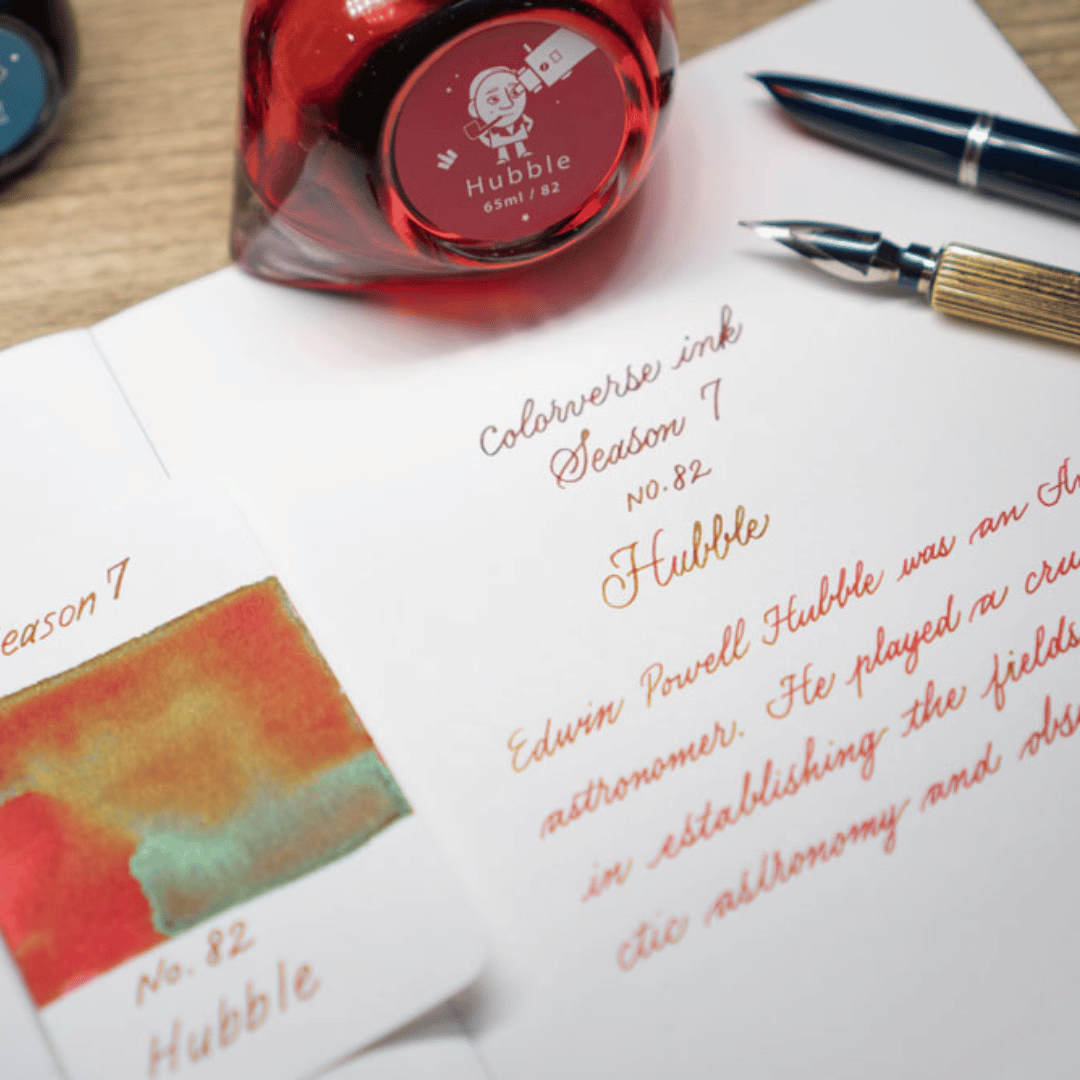 Hubble
65ml / 82
Colorverse ink
Season 7
NO. 82
Hubble
Edwin Powell Hubble was an
astronomer. He played a
in establishing the fields
ctic astronomy and
eason 7
No. 82
Hubble